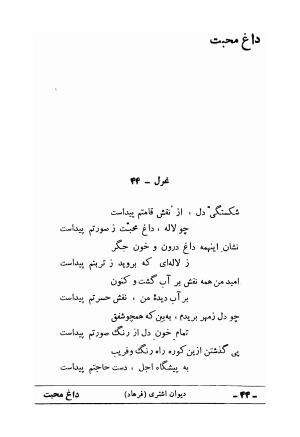 داغ محبت
غزل - ۴۴
شکستگیِ دل ، از نقش قامتم پیداست
چو لاله ، داغ محبّت ز صورتم پیداست
نشان اینهمه داغ درون و خون جگر
ز لاله‌ای که بروید ز تربتم پیداست
امید من همه نقش بر آب گشت و کنون
بر آب دیدهٔ من ، نقش حسرتم پیداست
چو دل ز مهر بریدم ، به‌بین که همچو شفق
تمام خون دل از رنگ صورتم پیداست
پی گذشتن ازین کوره راه رنگ و فریب
به پیشگاه اجل ، دست حاجتم پیداست
- ۴۴ - دیوان اشتری (فرهاد) داغ محبت